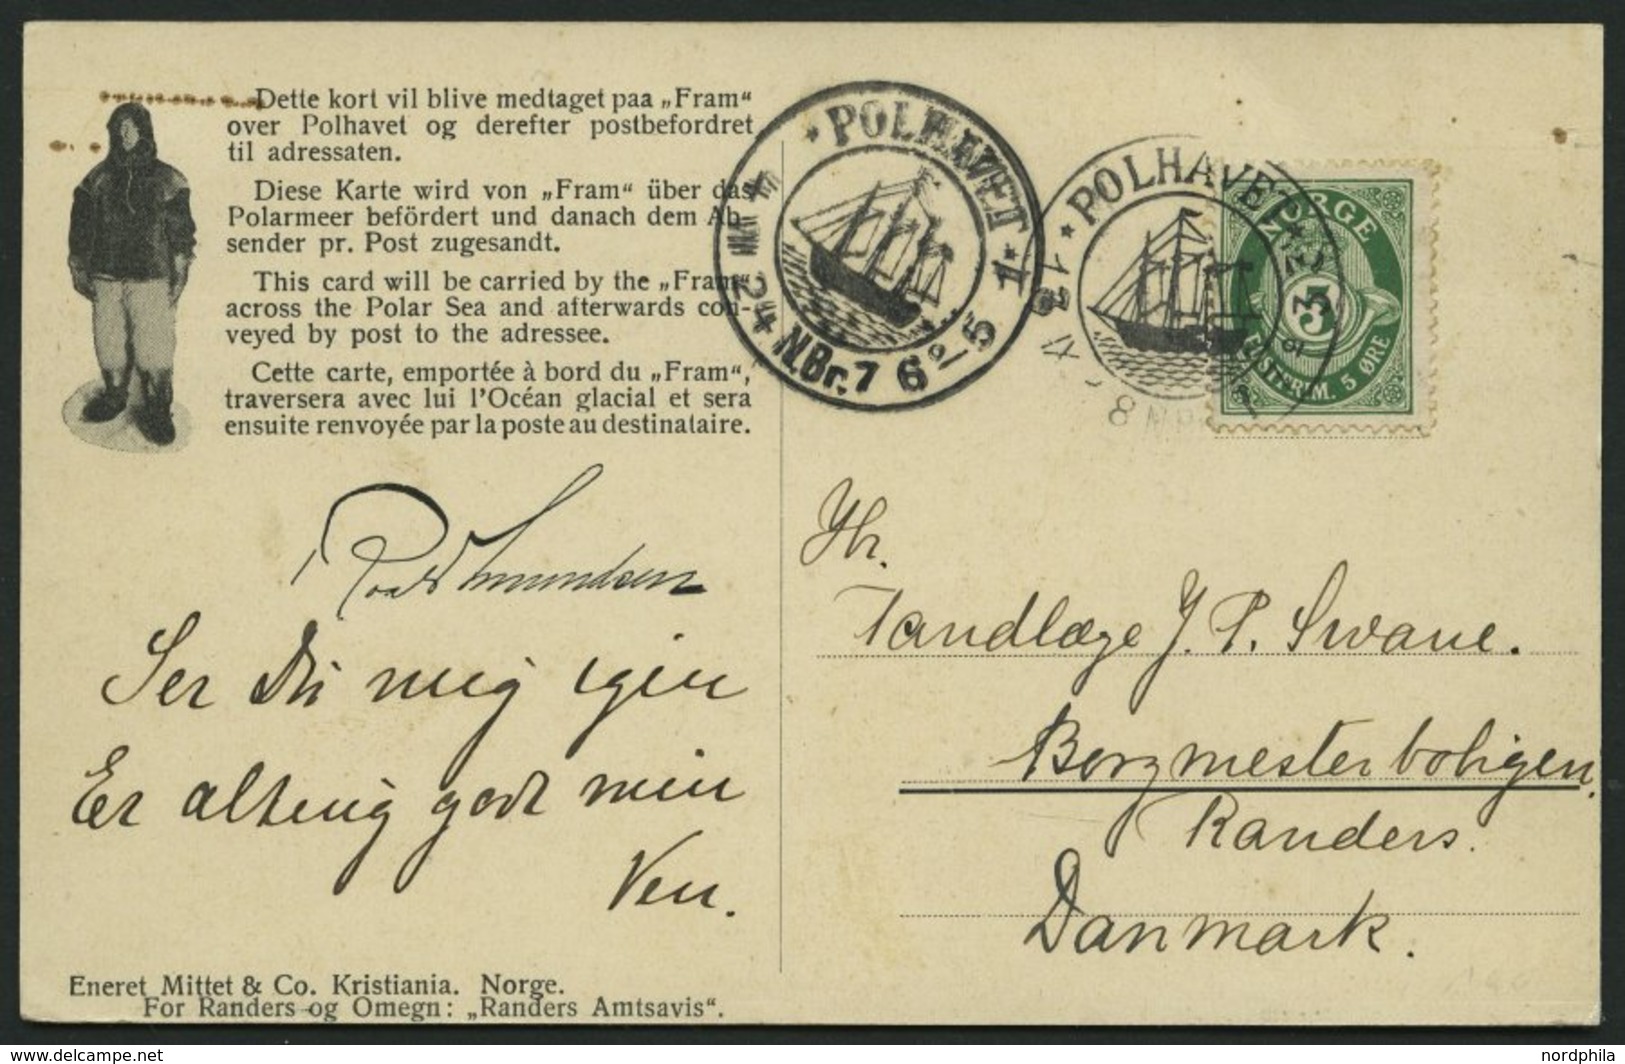 Dette kort vil blive medtaget paa „Fram“
over Polhavet og derefter postbefordret
til adressaten.
Diese Karte wird von „Fram“ über das
Polarmeer befördert und danach dem Ab-
sender pr. Post zugesandt.
This card will be carried by the „Fram“
across the Polar Sea and afterwards con-
veyed by post to the adressee.
Cette carte, emportée à bord du „Fram“,
traversera avec lui l'Océan glacial et sera
ensuite renvoyée par la poste au destinataire.
Roald Amundsen
Ser Du mig igen
Er alting godt min
Ven.
Eneret Mittet & Co. Kristiania. Norge.
For Randers og Omegn: „Randers Amtsavis“.
POLHAVET
24 N.Br. 76° 5 1
POLHAVET
NORGE
5
POSTFRIM. 5 ØRE
Hr.
Tandlæge J. P. Swane.
Borgmesterboligen,
Randers.
Danmark.
nordphila